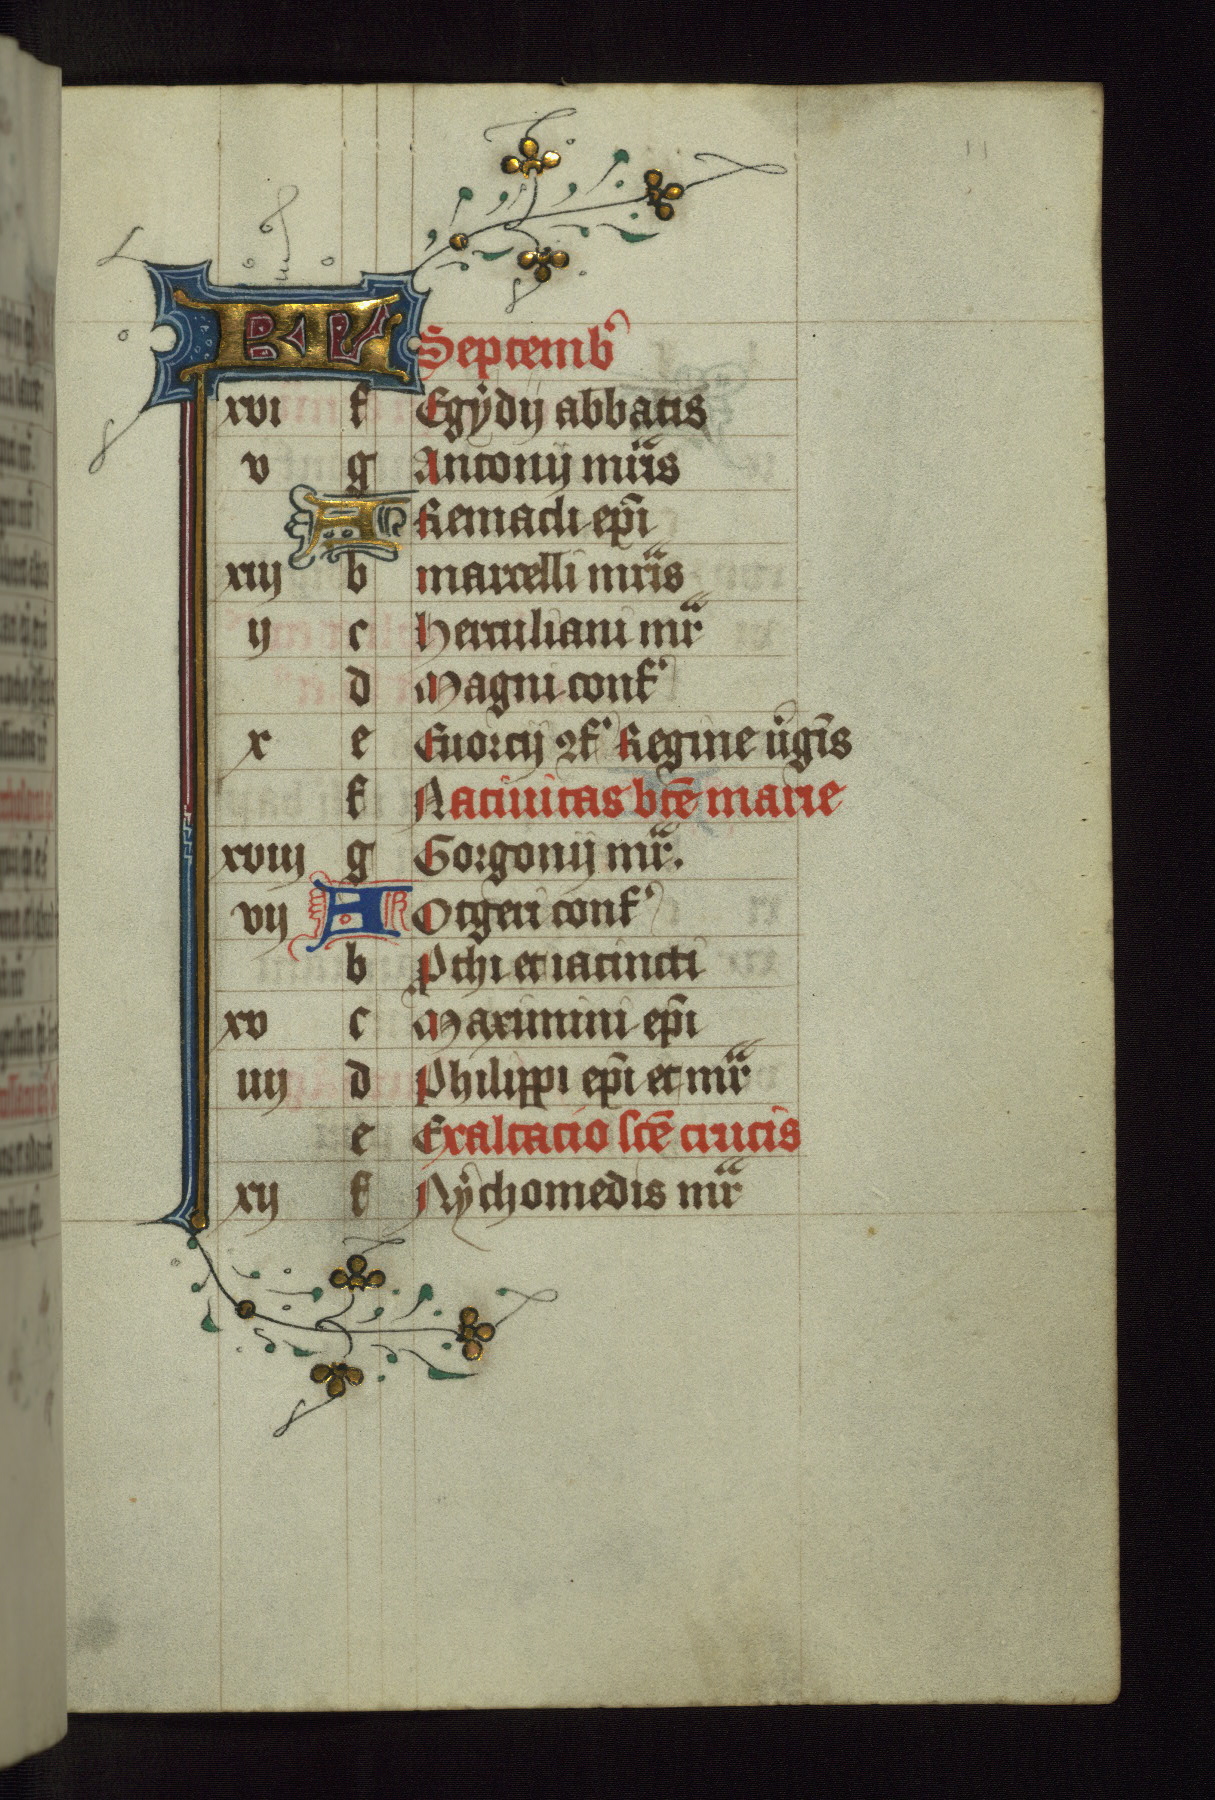 KL Septemb
xvi f Egÿdij abbatis
v g Antonij mris
A Remacli epi
xiij b marcelli mris
ij c herculiani mr
d Magni conf
x e Euorcij 2f Regine ugis
f Natiuitas bte marie
xviij g Gorgonij mr.
vij A Otgeri conf
b Pthi et iacincti
xv c Maximini epi
iiij d Philippi epi et mr
e Exaltacio sce crucis
xij f Nÿchomedis mr